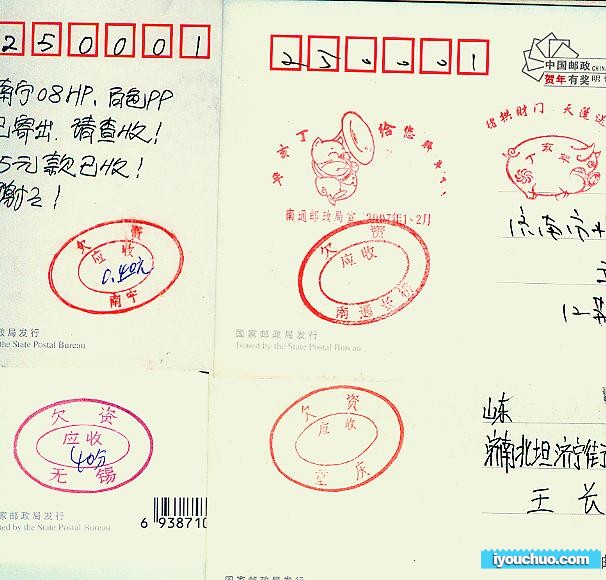 250001
南宁08HP、百色PP
已寄出.请查收!
5元款已收!
谢之!
欠资
应收
0.40元
南宁
政局发行
the State Postal Bureau
250001
中国邮政 CHIN
贺年有奖明信
丁亥年 给您拜年了!
南通邮政局宣 2007年1、2月
猪拱财门 天蓬送
丁亥年
欠资
应收
南通长桥
济南市
12
国家邮政局发行
Issued by the State Postal Bureau
欠资
应收
40分
无锡
家邮政局发行
sued by the State Postal Bureau
6 938710
欠资
应收
重庆
山东
济南北坦济宁街
王长
国家邮政局发行
iyouchuo.com